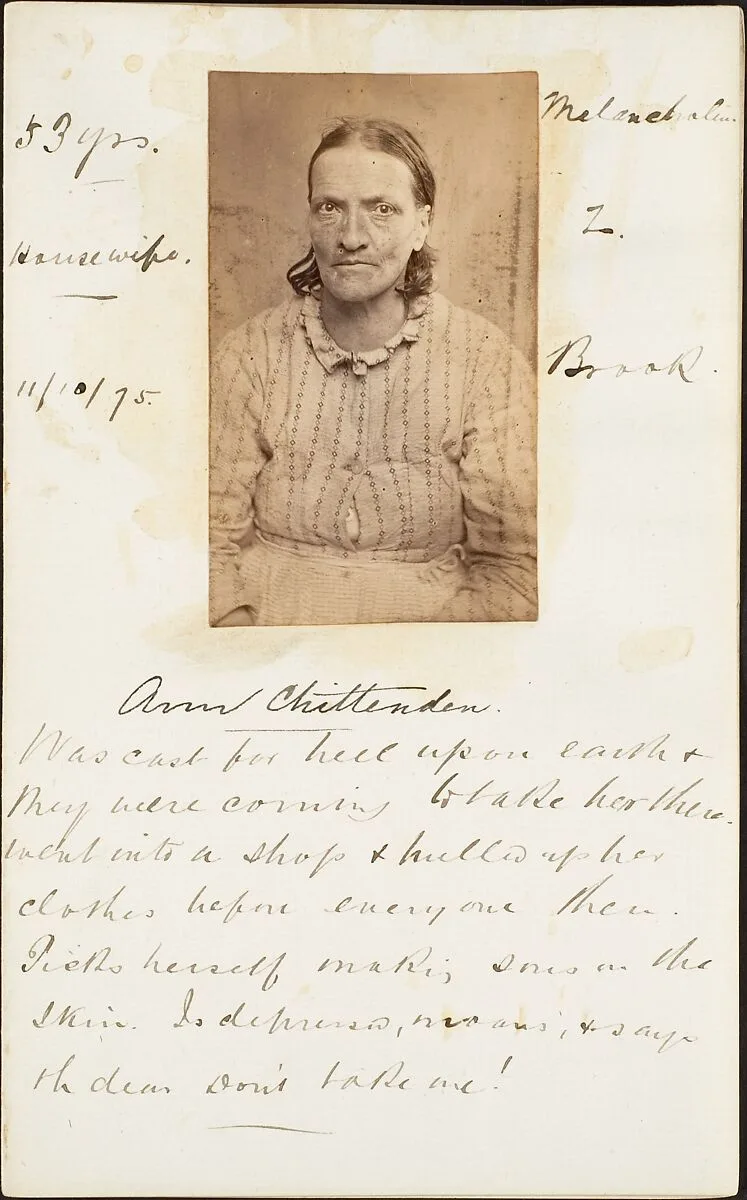 53 yrs.
Housewife.
11/10/75.
Melancholia.
2.
Brook.
Ann Chittenden.
Was cast for hell upon earth &
they were coming to take her there.
went into a shop & pulled up her
clothes before everyone there.
Picks herself making sores on the
skin. Is depressed, moans, & says
oh dear don't take me!